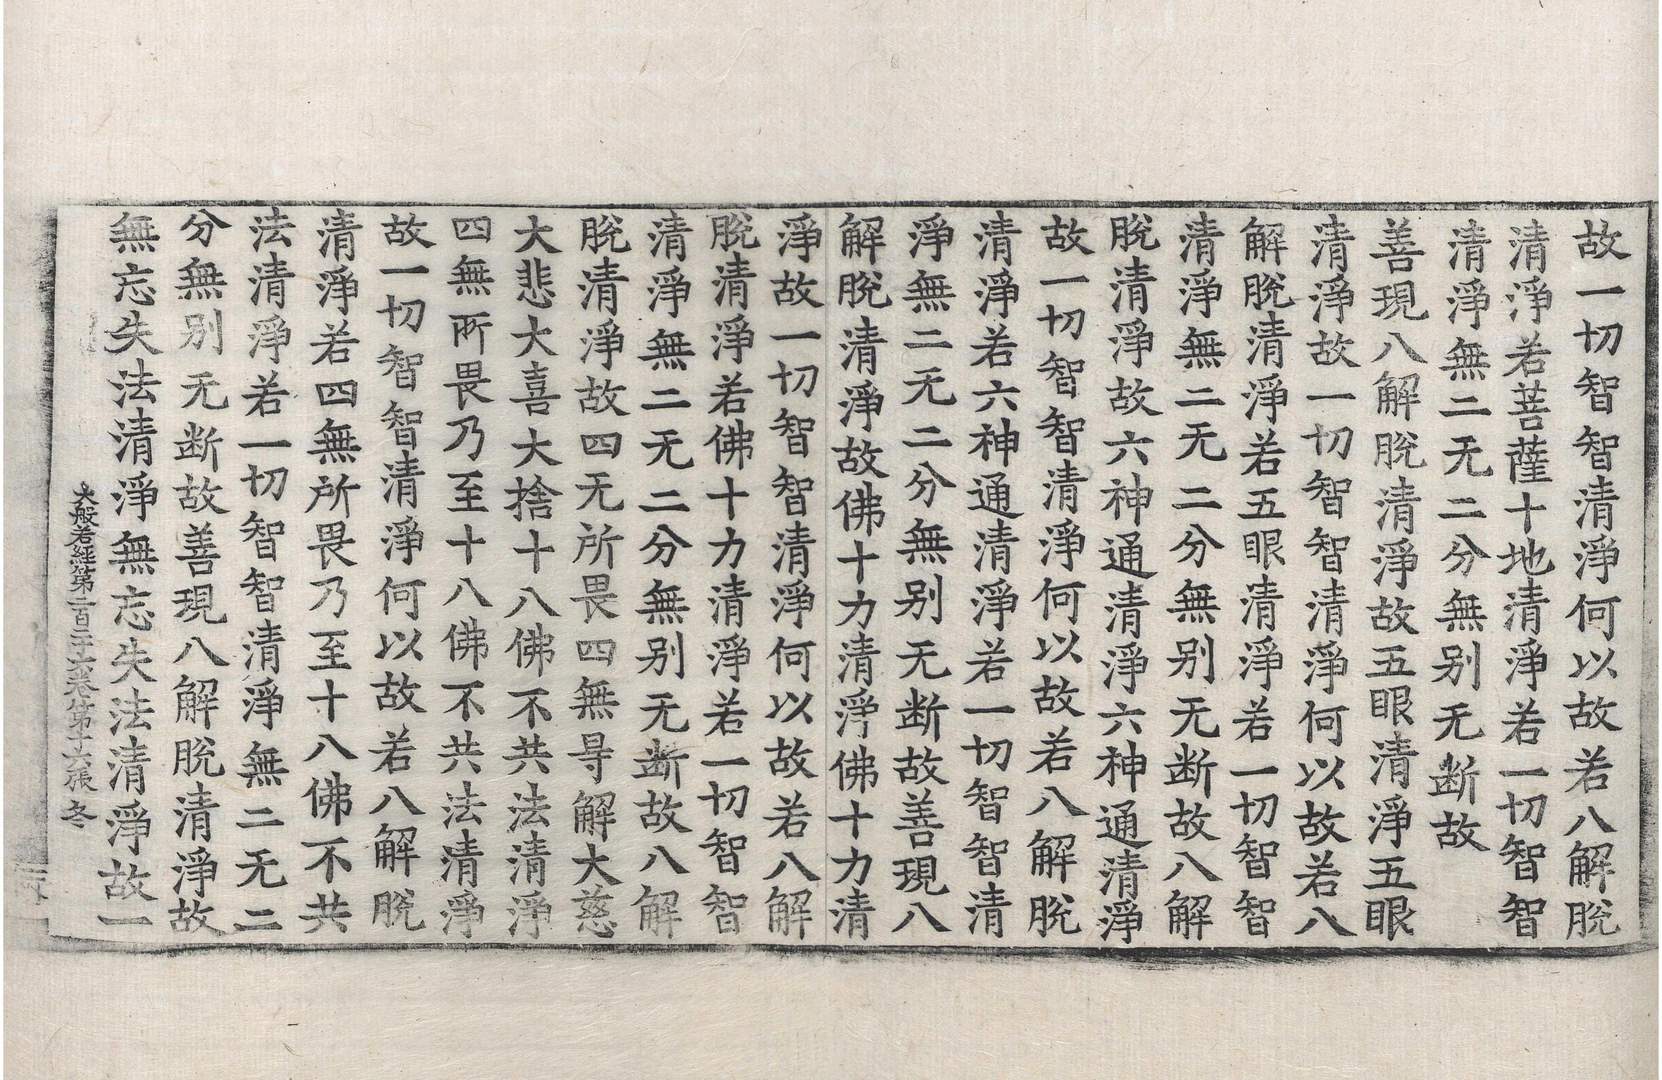 故一切智智清淨何以故若八解脫
清淨若菩薩十地清淨若一切智智
清淨無二无二分無别无断故
善現八解脫清淨故五眼清淨五眼
清淨故一切智智清淨何以故若八
解脫清淨若五眼清淨若一切智智
清淨無二无二分無别无断故八解
脫清淨故六神通清淨六神通清淨
故一切智智清淨何以故若八解脫
清淨若六神通清淨若一切智智清
淨無二无二分無别无断故善現八
解脫清淨故佛十力清淨佛十力清
淨故一切智智清淨何以故若八解
脫清淨若佛十力清淨若一切智智
清淨無二无二分無别无断故八解
脫清淨故四无所畏四無㝵解大慈
大悲大喜大捨十八佛不共法清淨
四無所畏乃至十八佛不共法清淨
故一切智智清淨何以故若八解脫
清淨若四無所畏乃至十八佛不共
法清淨若一切智智清淨無二无二
分無别无断故善現八解脫清淨故
無忘失法清淨無忘失法清淨故一
大般若經第二百二十六卷第十六張 冬